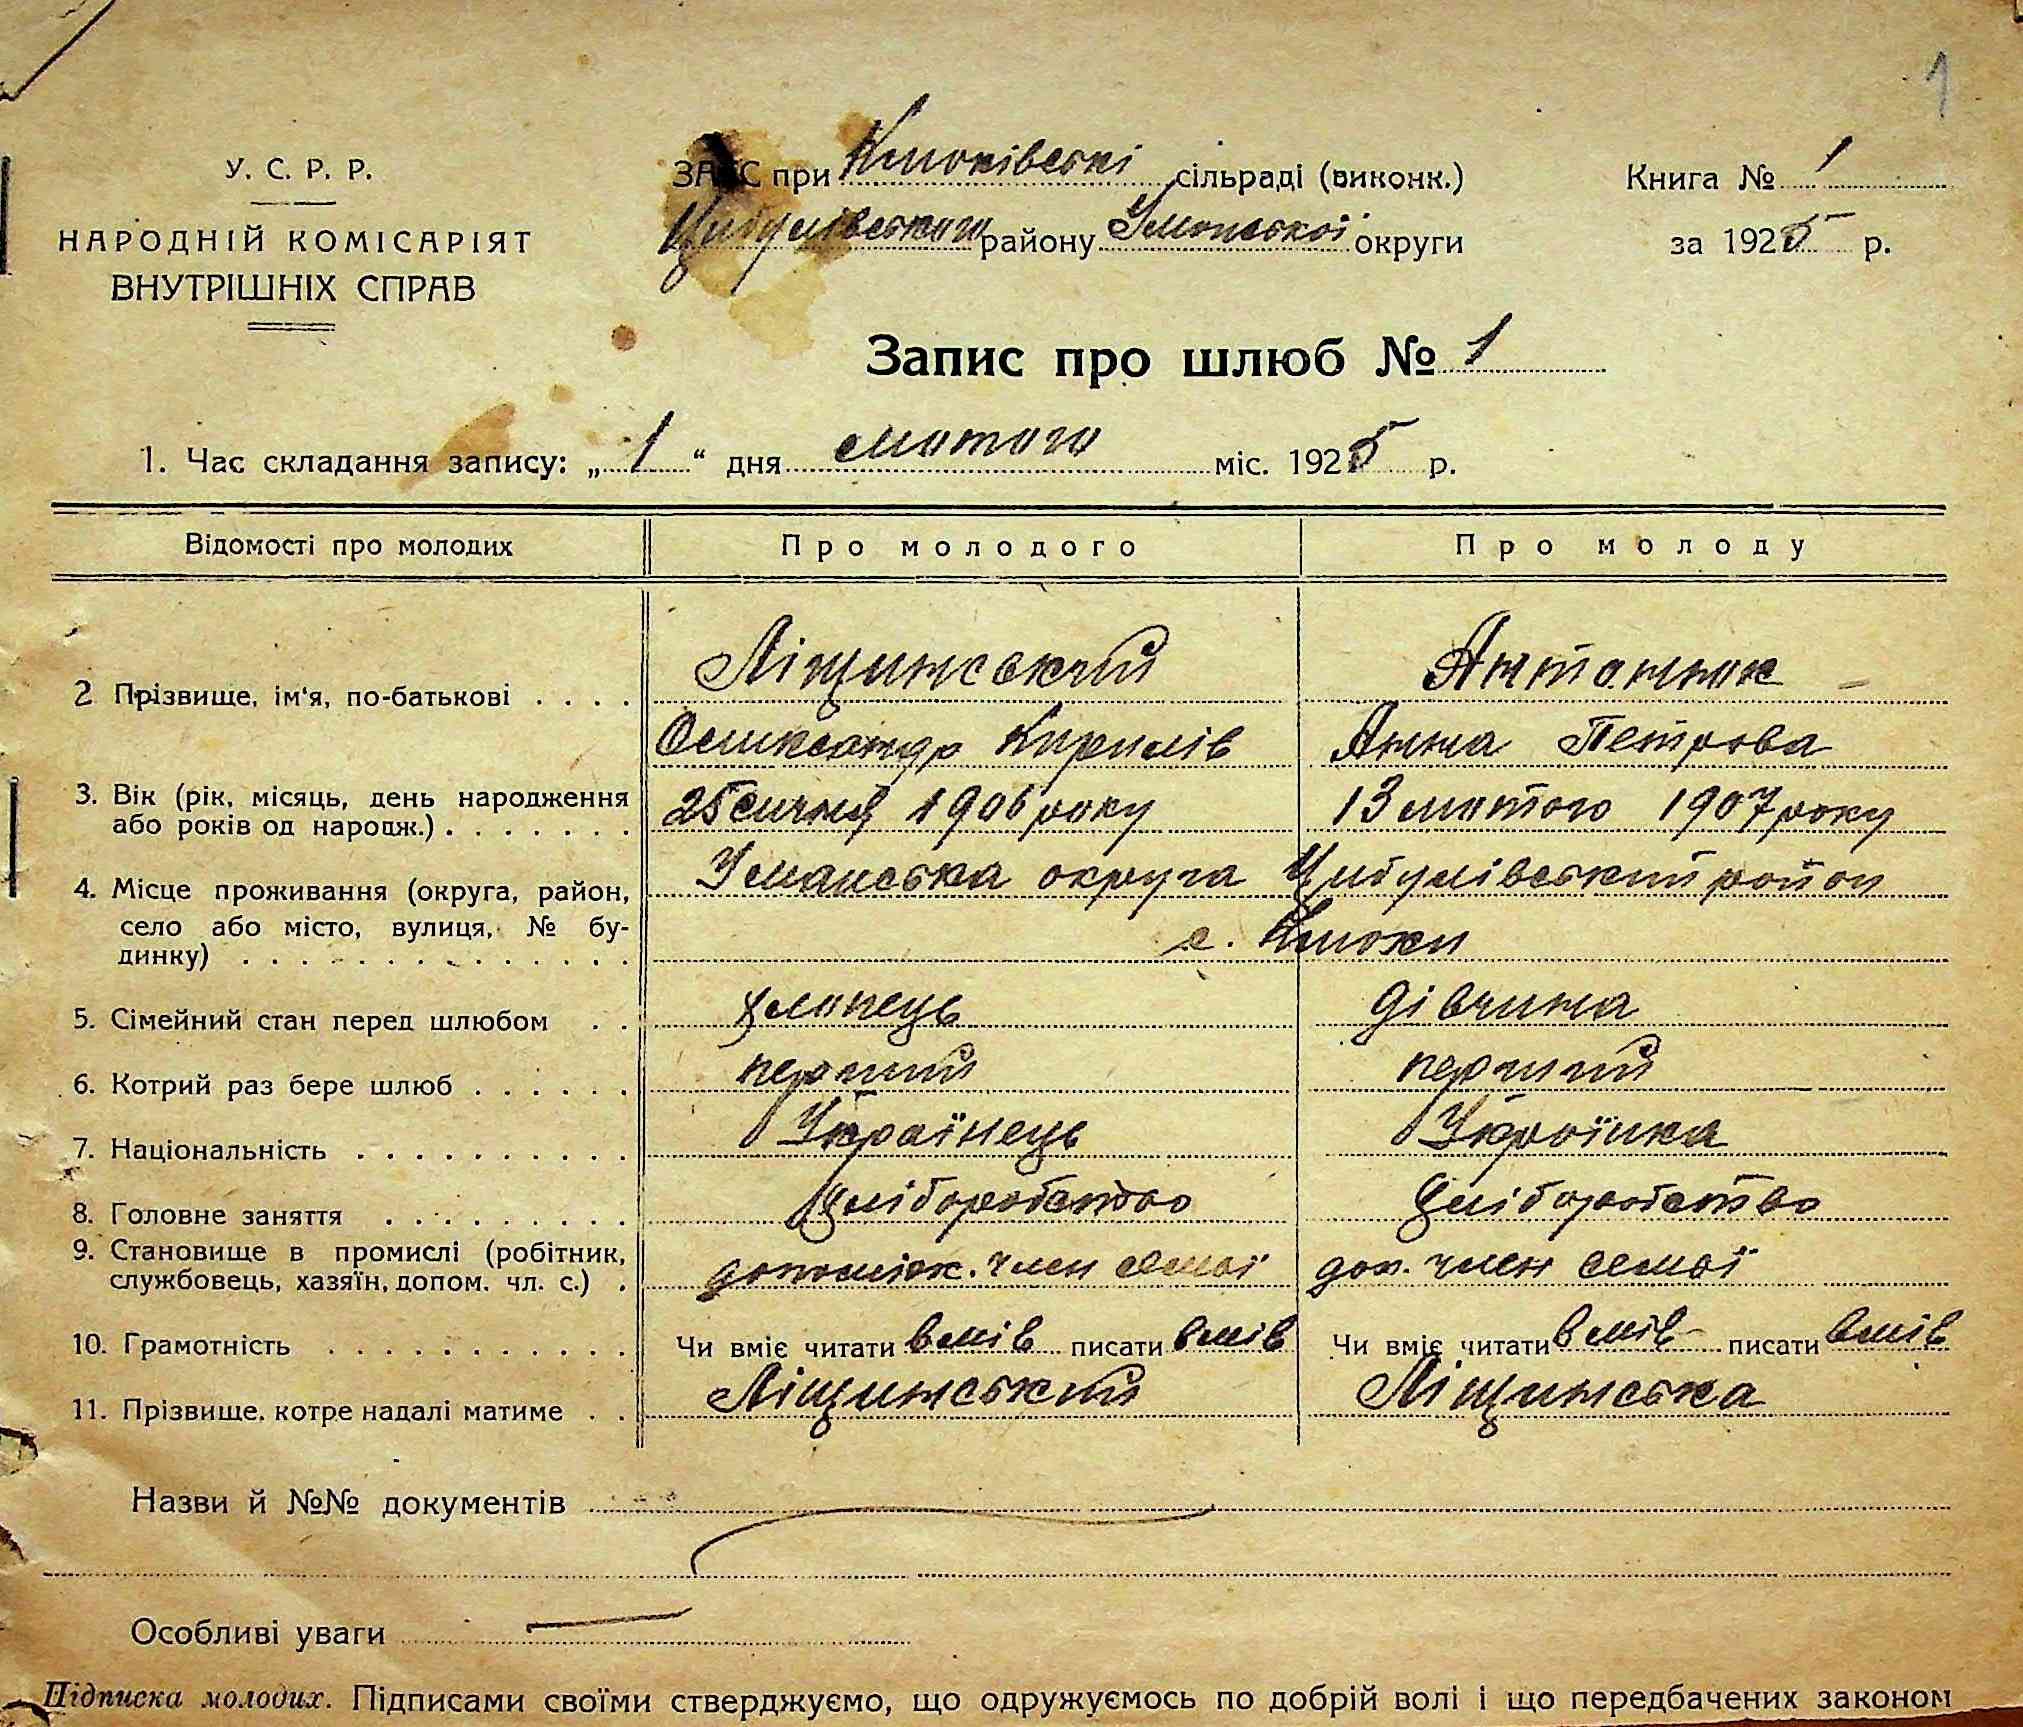 1
У. С. Р. Р.
НАРОДНІЙ КОМІСАРІЯТ
ВНУТРІШНІХ СПРАВ
ЗАГС при Клюківські сільраді (виконк.)
Цибулівського району Уманської округи
Книга № 1
за 1925 р.
Запис про шлюб № 1
1. Час складання запису: „ 1 “ дня лютого міс. 1925 р.
Відомості про молодих Про молодого Про молоду
2 Прізвище, ім‘я, по-батькові . . . . Ліщинський Антонюк
Олександр Кирилів Анна Петрова
3. Вік (рік, місяць, день народження
або років од народж.) . . . . . . . 25 січня 1906 року 13 лютого 1907 року
4. Місце проживання (округа, район, Уманська округа Цибулівський район
село або місто, вулиця, № бу-
динку) . . . . . . . . . . . . . . с. Клюки
5. Сімейний стан перед шлюбом . . хлопець дівчина
6. Котрий раз бере шлюб . . . . . . перший перший
7. Національність . . . . . . . . . . Українець Українка
8. Головне заняття . . . . . . . . . хліборобство хліборобство
9. Становище в промислі (робітник,
службовець, хазяїн, допом. чл. с.) . допоміж. член семьї доп. член семьї
10. Грамотність . . . . . . . . . . . Чи вміє читати вмів писати вмів Чи вміє читати вмів писати вмів
11. Прізвище, котре надалі матиме . . Ліщинський Ліщинська
Назви й №№ документів
Особливі уваги
Підписка молодих. Підписами своїми стверджуємо, що одружуємось по добрій волі і що передбачених законом